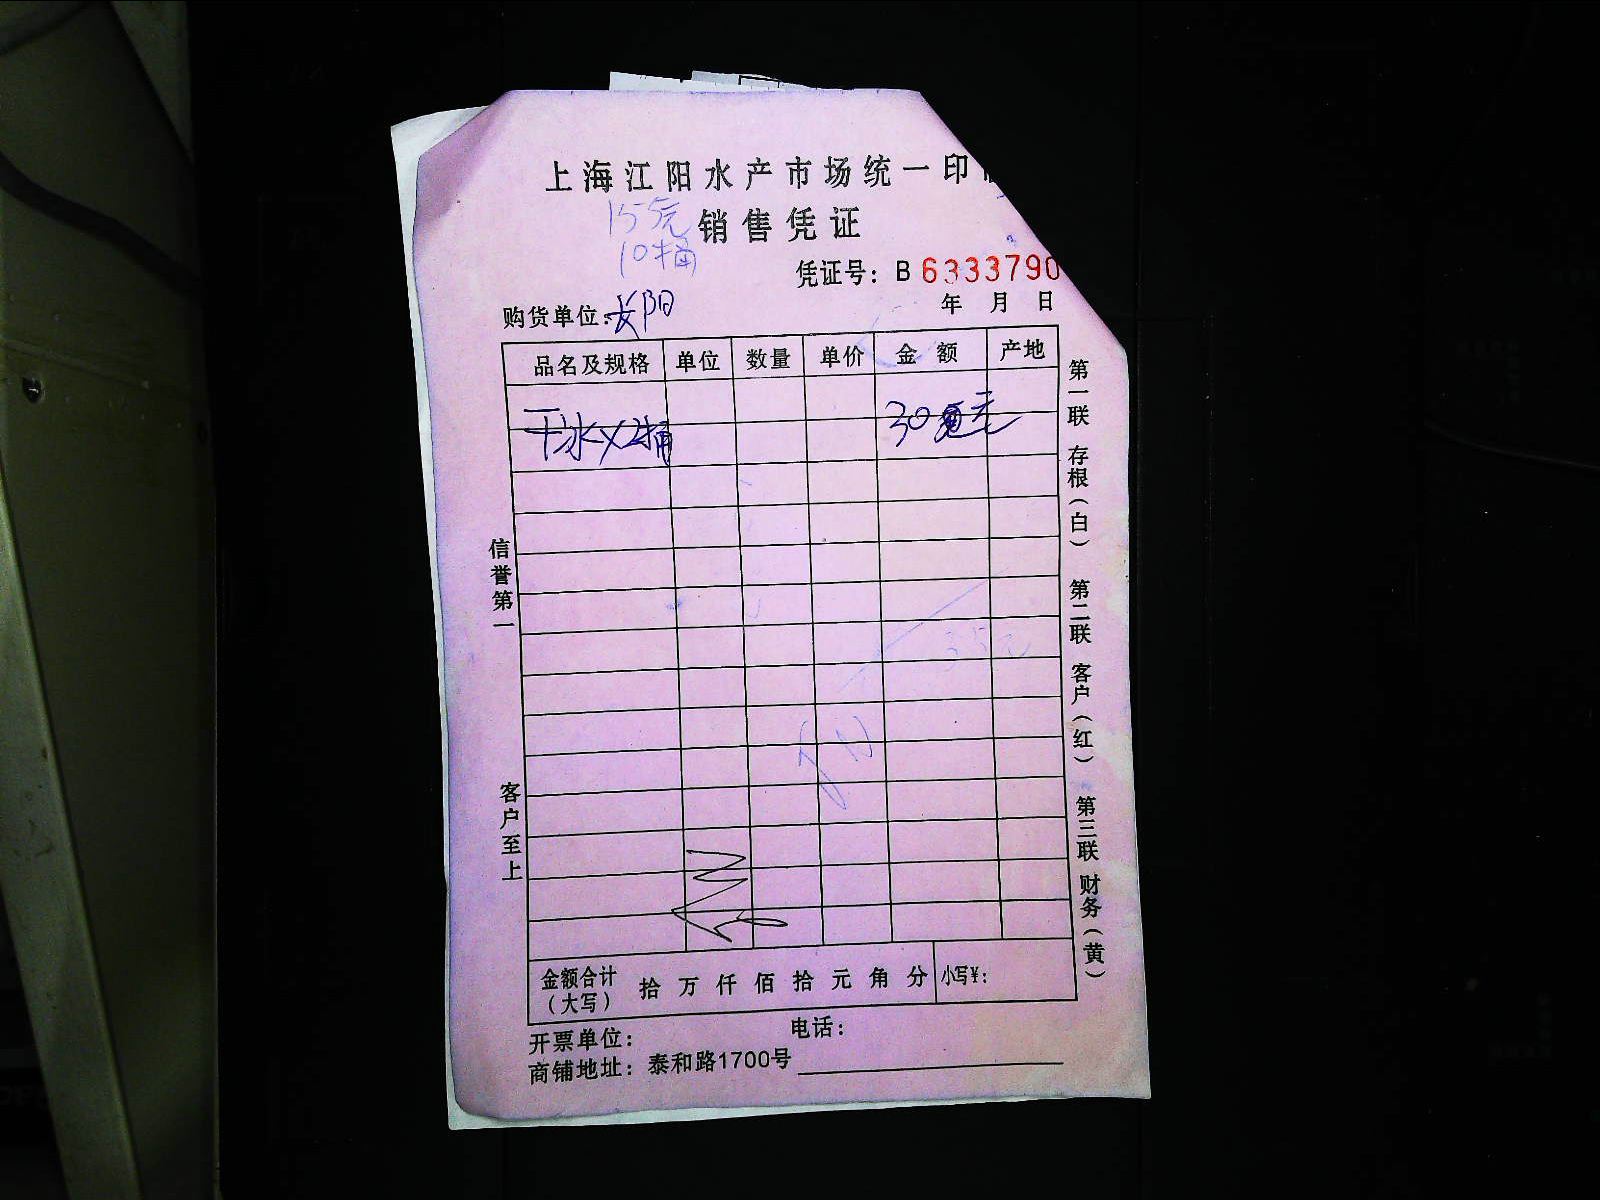 上海江阳水产市场统一印
155元
销售凭证
10桶
凭证号：B 6333790
购货单位：长阳
年 月 日
品名及规格 单位 数量 单价 金额 产地
干冰×2桶 30 元
35元
金额合计（大写） 拾 万 仟 佰 拾 元 角 分 小写¥：
开票单位： 电话：
商铺地址：泰和路1700号
信誉第一
客户至上
第一联 存根（白） 第二联 客户（红） 第三联 财务（黄）